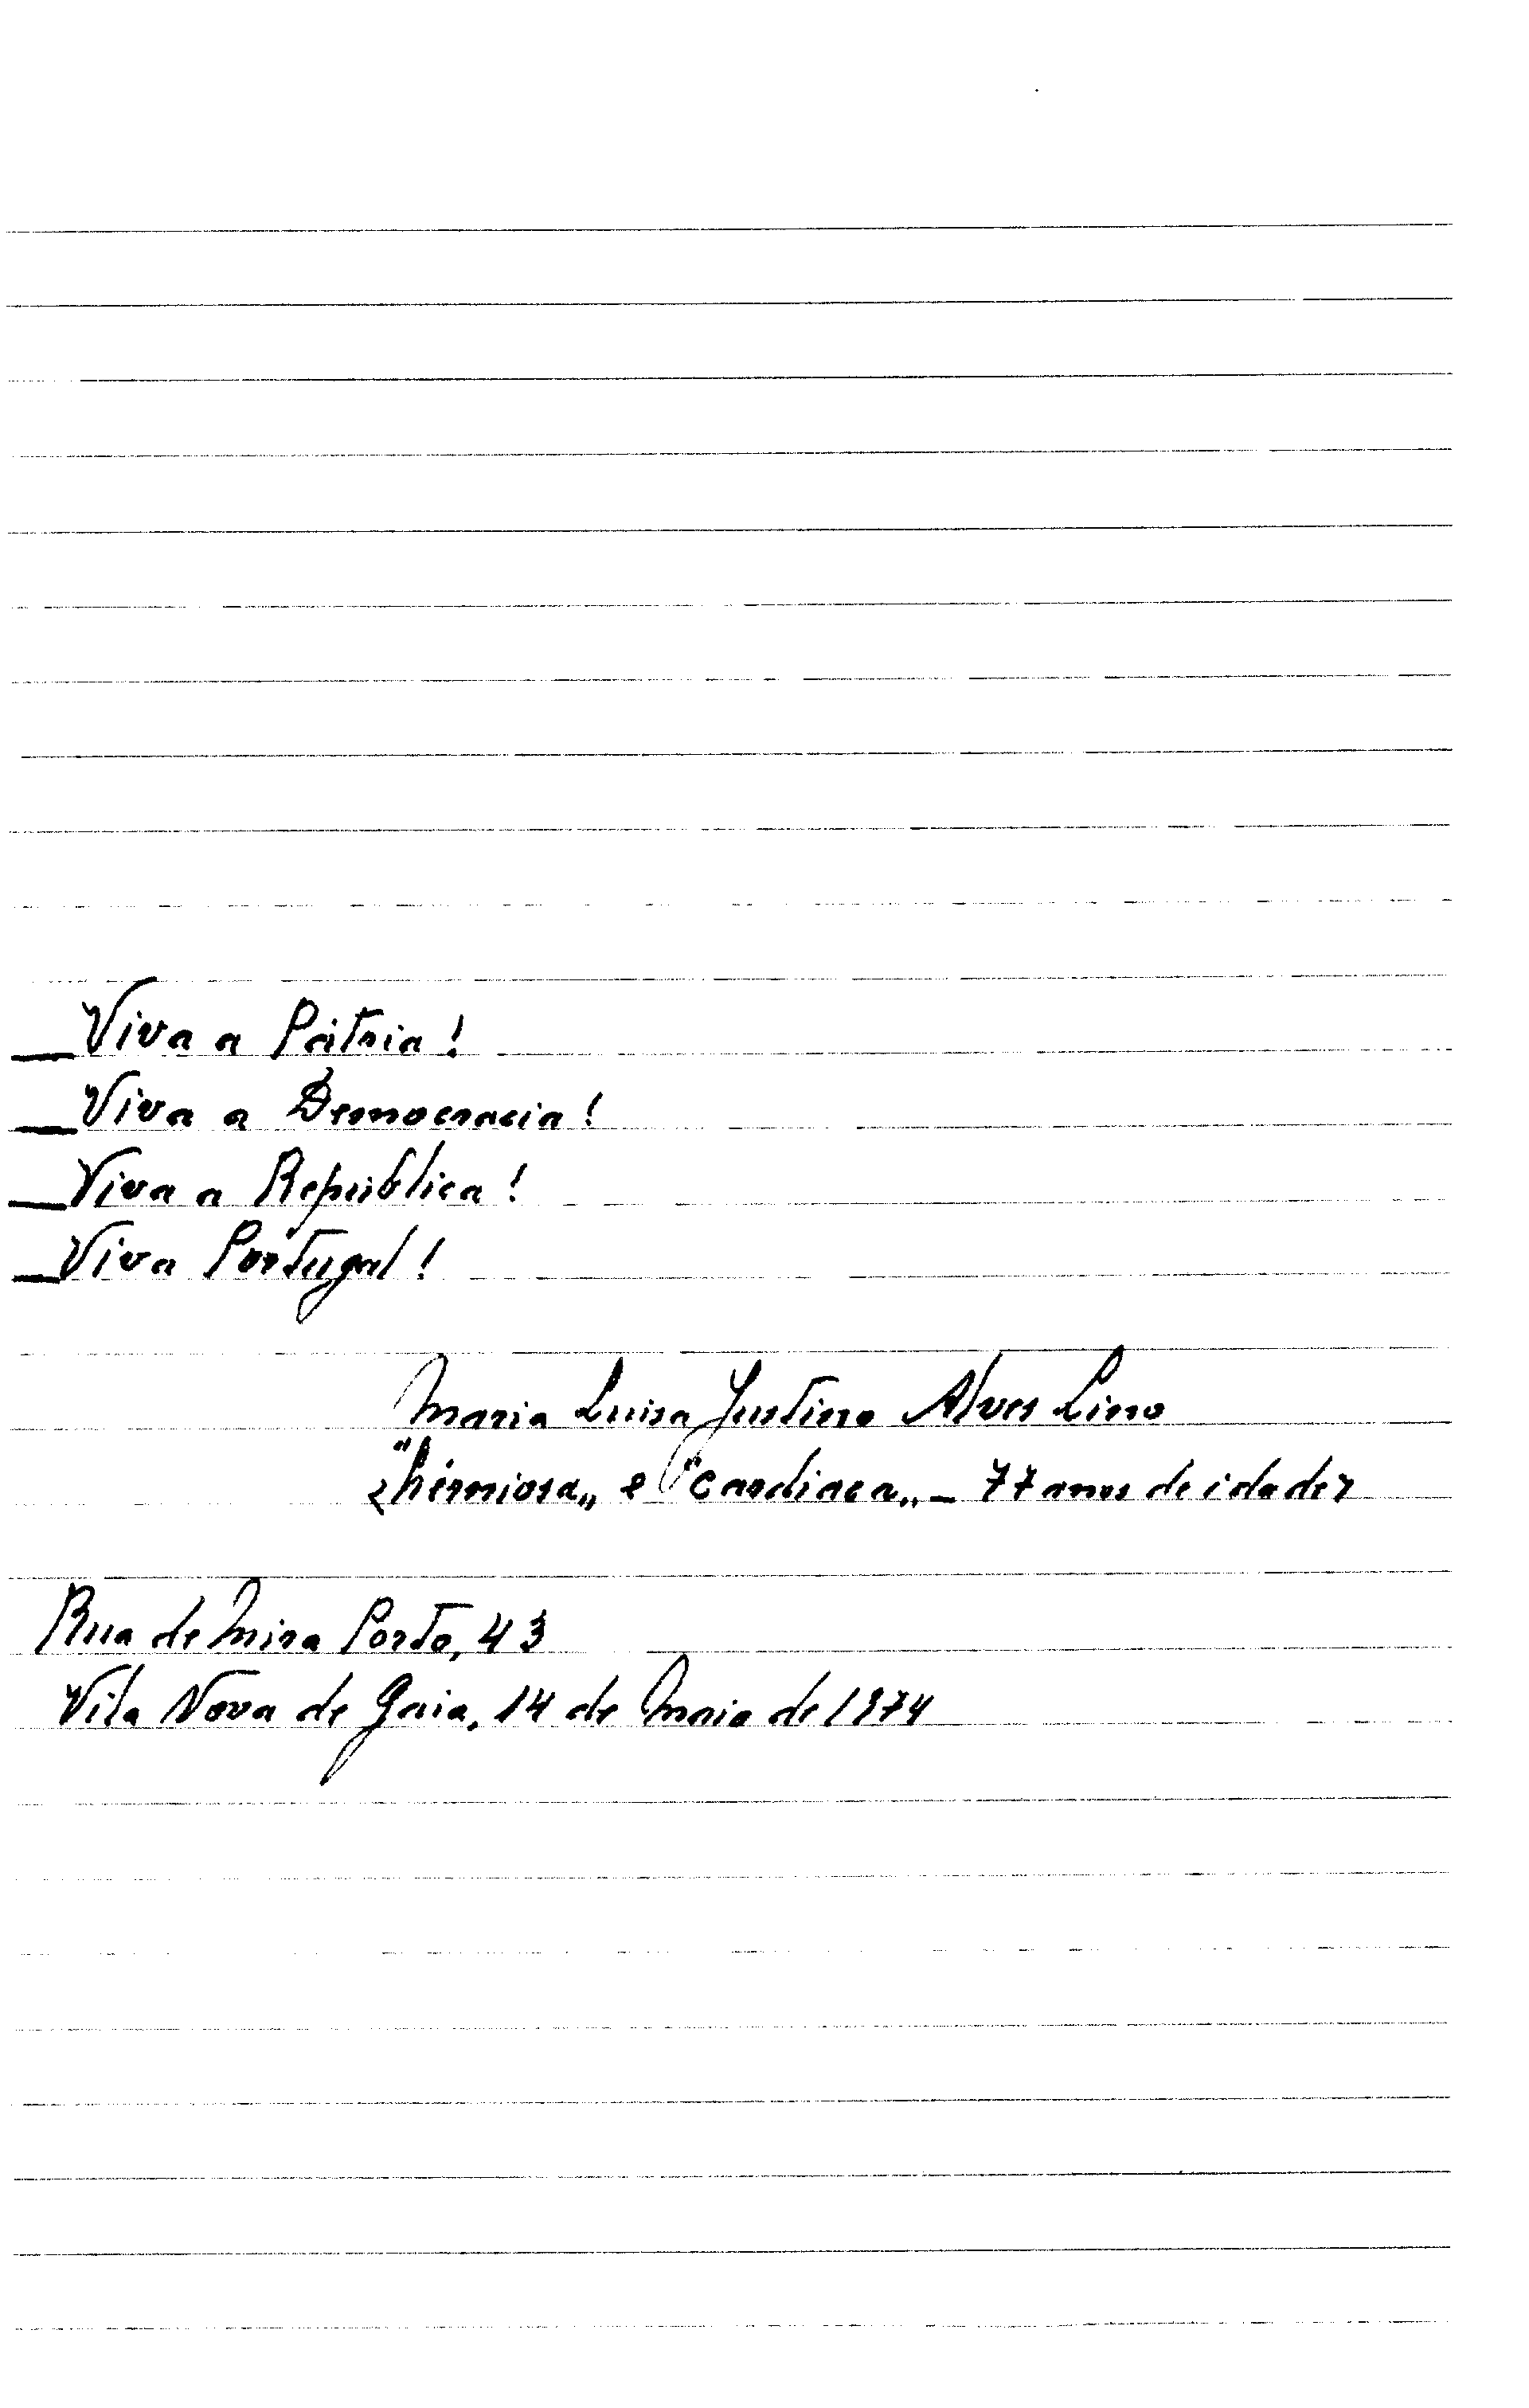 — Viva a Pátria!
— Viva a Democracia!
— Viva a República!
— Viva Portugal!
Maria Luisa Justino Alves Lino
<"hérniosa„ e "cardiaca„ — 77 anos de idade>
Rua de Mira Porto, 43
Vila Nova de Gaia, 14 de Maio de 1974